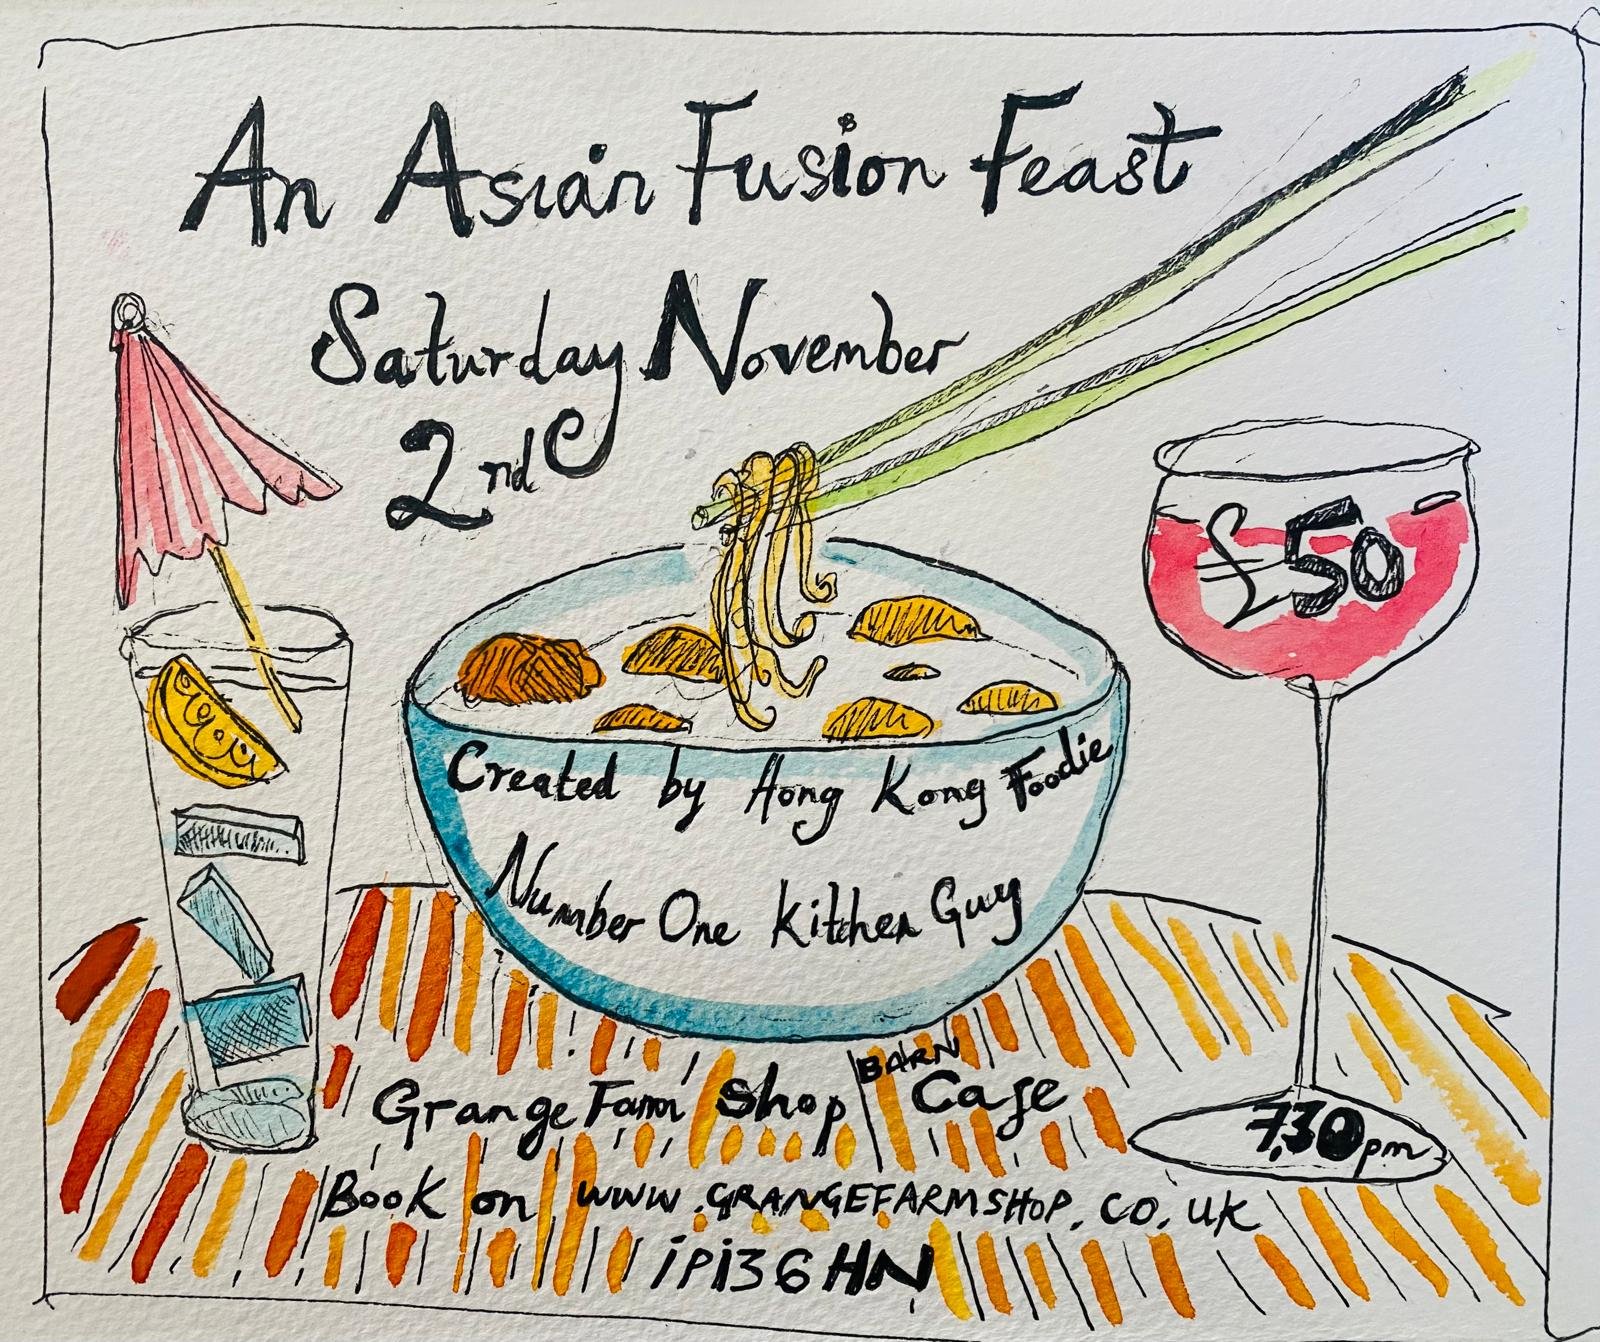 An Asian Fusion Feast
Saturday November
2nd
£50
Created by Hong Kong Foodie
Number One Kitchen Guy
BARN
Grange Farm Shop Cafe
7.30pm
Book on www.GRANGEFARMSHOP.CO.UK
iPi36HN